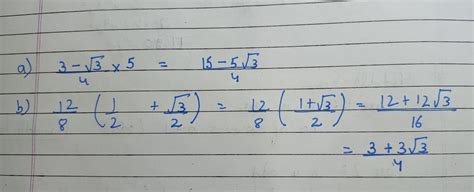 a) (3 - √3)/4 × 5 = (15 - 5√3)/4
b) 12/8 (1/2 + √3/2) = 12/8 ((1+√3)/2) = (12 + 12√3)/16
= (3 + 3√3)/4